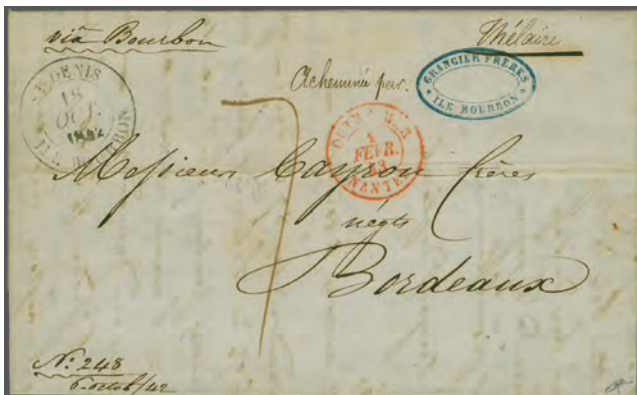 via Bourbon
Thélaire
ST DENIS
18
OCT.
1842
ILE BOURBON
Acheminée par.
GRANGIER FRÈRES
ILE BOURBON
OUTRE MER
FEVR.
43
NANTES
7
Messieurs Cayrou frères
négts
Bordeaux
No. 248
6 octob/42